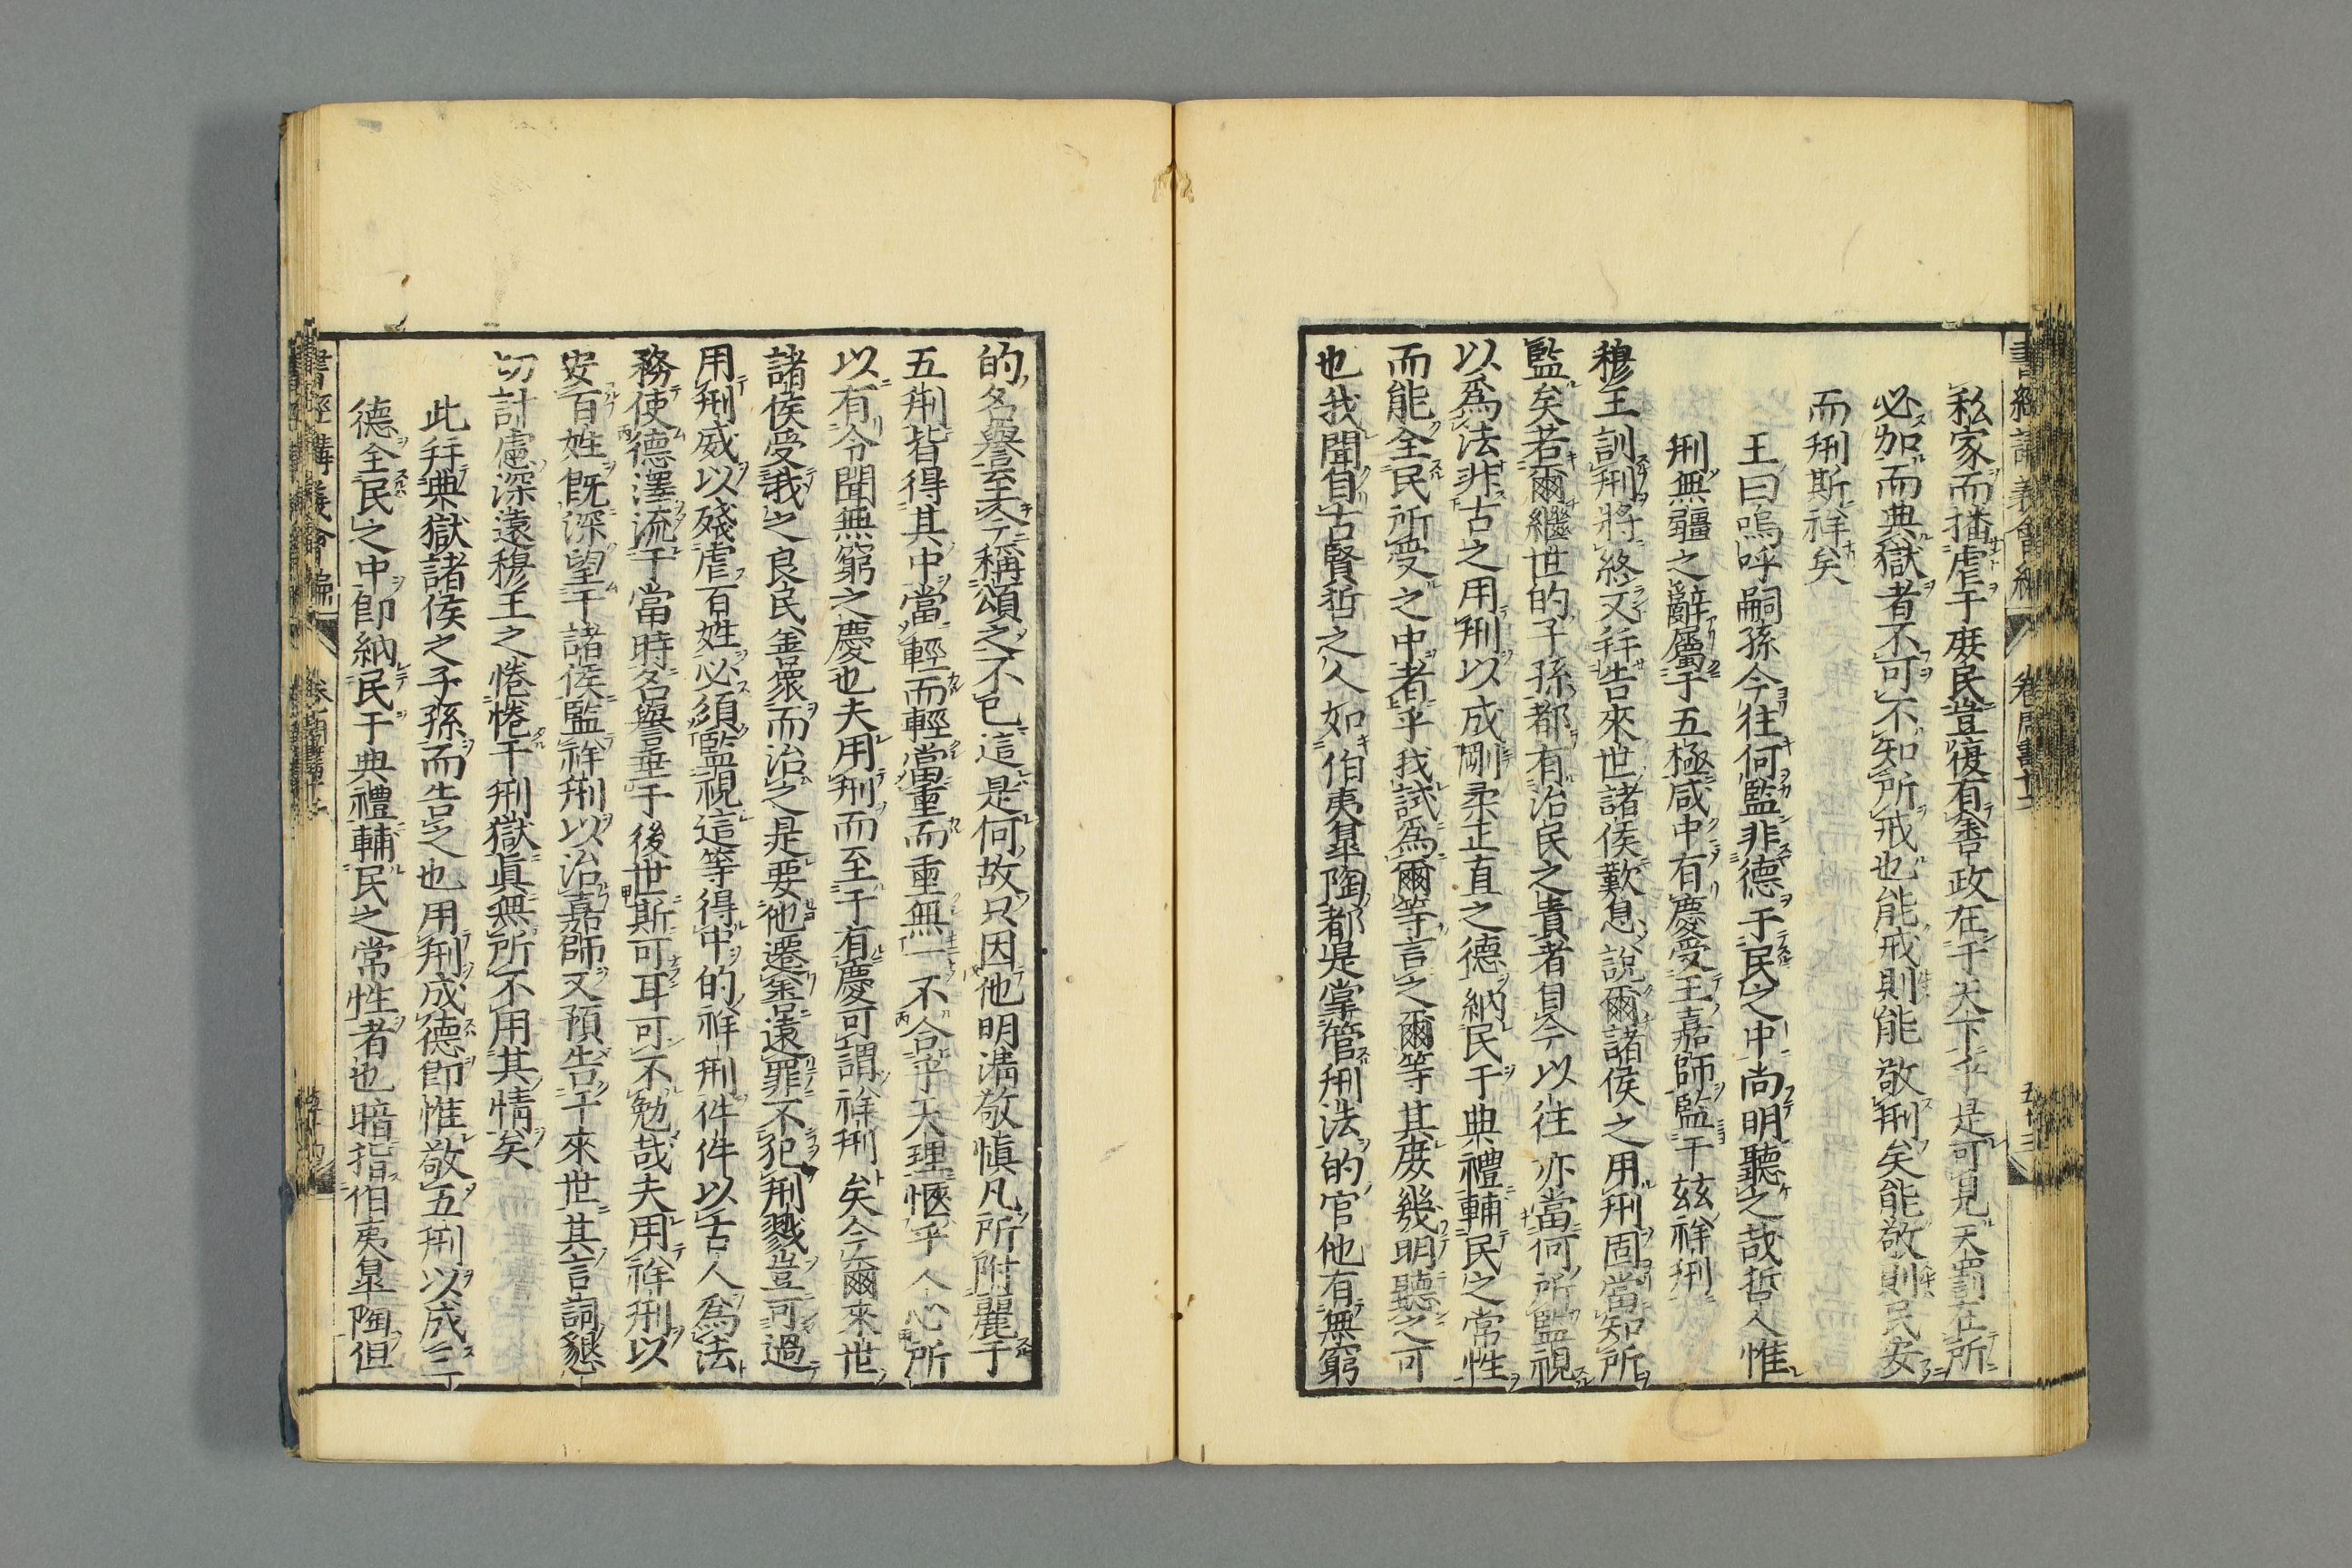 私家而播虐于庶民豈復有善政在于天下乎是可見天罰在所
必加而典獄者不可不知所戒也能戒則能敬刑矣能敬則民安
而刑斯祥矣
王曰嗚呼嗣孫今往何監非德于民之中尚明聽之哉哲人惟
刑無疆之辭屬于五極咸中有慶受王嘉師監于茲祥刑
穆王訓刑將終又呼告來世諸侯歎息說爾諸侯之用刑固當知所
監矣若爾繼世的子孫都有治民之貴者自今以往亦當何所監視
以爲法非古之用刑以成剛柔正直之德納民于典禮輔民之常性
而能全民所受之中者乎我試爲爾等言之爾等其庶幾明聽之可
也我聞自古賢哲之人如伯夷皐陶都是掌管刑法的官他有無窮
的名譽至今稱頌之不已這是何故只因他明淸敬愼凡所附麗于
五刑皆得其中當輕而輕當重而重無一不合乎天理愜乎人心所
以有令聞無窮之慶也夫用刑而至于有慶可謂祥刑矣今爾來世
諸侯受我之良民善衆而治之是要他遷善遠罪不犯刑戮豈可過
用刑威以殘虐百姓必須監視這等得中的祥刑件件以古人爲法
務使德澤流于當時名譽垂于後世斯可耳可不勉哉夫用祥刑以
安百姓旣深望于諸侯監祥刑以治嘉師又預告于來世其言詞懇
切計慮深遠穆王之惓惓于刑獄眞無所不用其情矣
此呼典獄諸侯之子孫而告之也用刑成德卽惟敬五刑以成三
德全民之中卽納民于典禮輔民之常性者也暗指伯夷皐陶但
書經講義會編